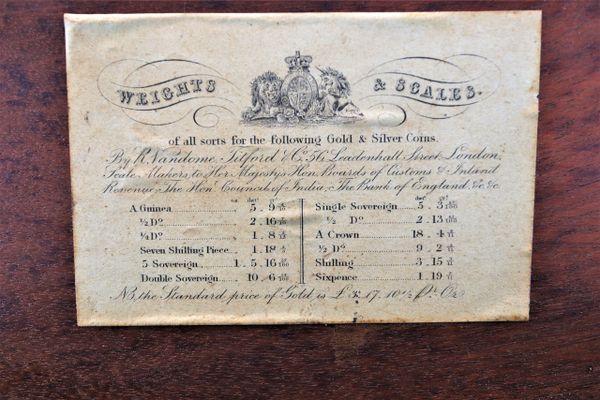 WEIGHTS & SCALES.
of all sorts for the following Gold & Silver Coins.
By R. Vandome, Titford & Co. Leadenhall Street London,
Scale Makers, to Her Majestys Hon. Boards of Customs & Inland
Revenue, The Honl. Council of India, The Bank of England, &c. &c.
oz dwt gr
A Guinea 5 . 9
½ Do. 2 . 16
¼ Do. 1 . 8
Seven Shilling Piece 1 . 18
5 Sovereign 1 . 5 . 16
Double Sovereign 10 . 6
dwt gr
Single Sovereign 5 . 3
½ Do. 2 . 13
A Crown 18 . 4
½ Do. 9 . 2
Shilling 3 . 15
Sixpence 1 . 19
NB, the Standard price of Gold is £3. 17. 10½ Pr. Oz.